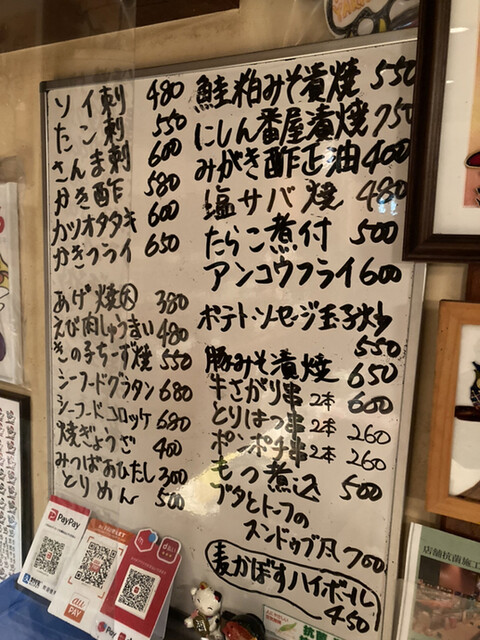 ソイ刺 480
たこ刺 550
さんま刺 600
かき酢 580
カツオタタキ 600
かきフライ 650
あげ焼大 380
えび肉しゅうまい 480
きの子ちーず焼 550
シーフードグラタン 680
シーフードコロッケ 680
焼ぎょうざ 400
みつばおひたし 300
とりめん 500
鮭粕みそ漬焼 550
にしん番屋漬焼 750
みがき酢正油 400
塩サバ焼 480
たらこ煮付 500
アンコウフライ 600
ポテトソーセージ玉子炒
550
豚みそ漬焼 650
牛さがり串2本 600
とりはつ串2本 260
ポンポチ串2本 260
もつ煮込 500
ブタとトーフの
スンドゥブ風 700
麦かぼすハイボール
450
PayPay
au
PAY
d払い
店舗抗菌施工